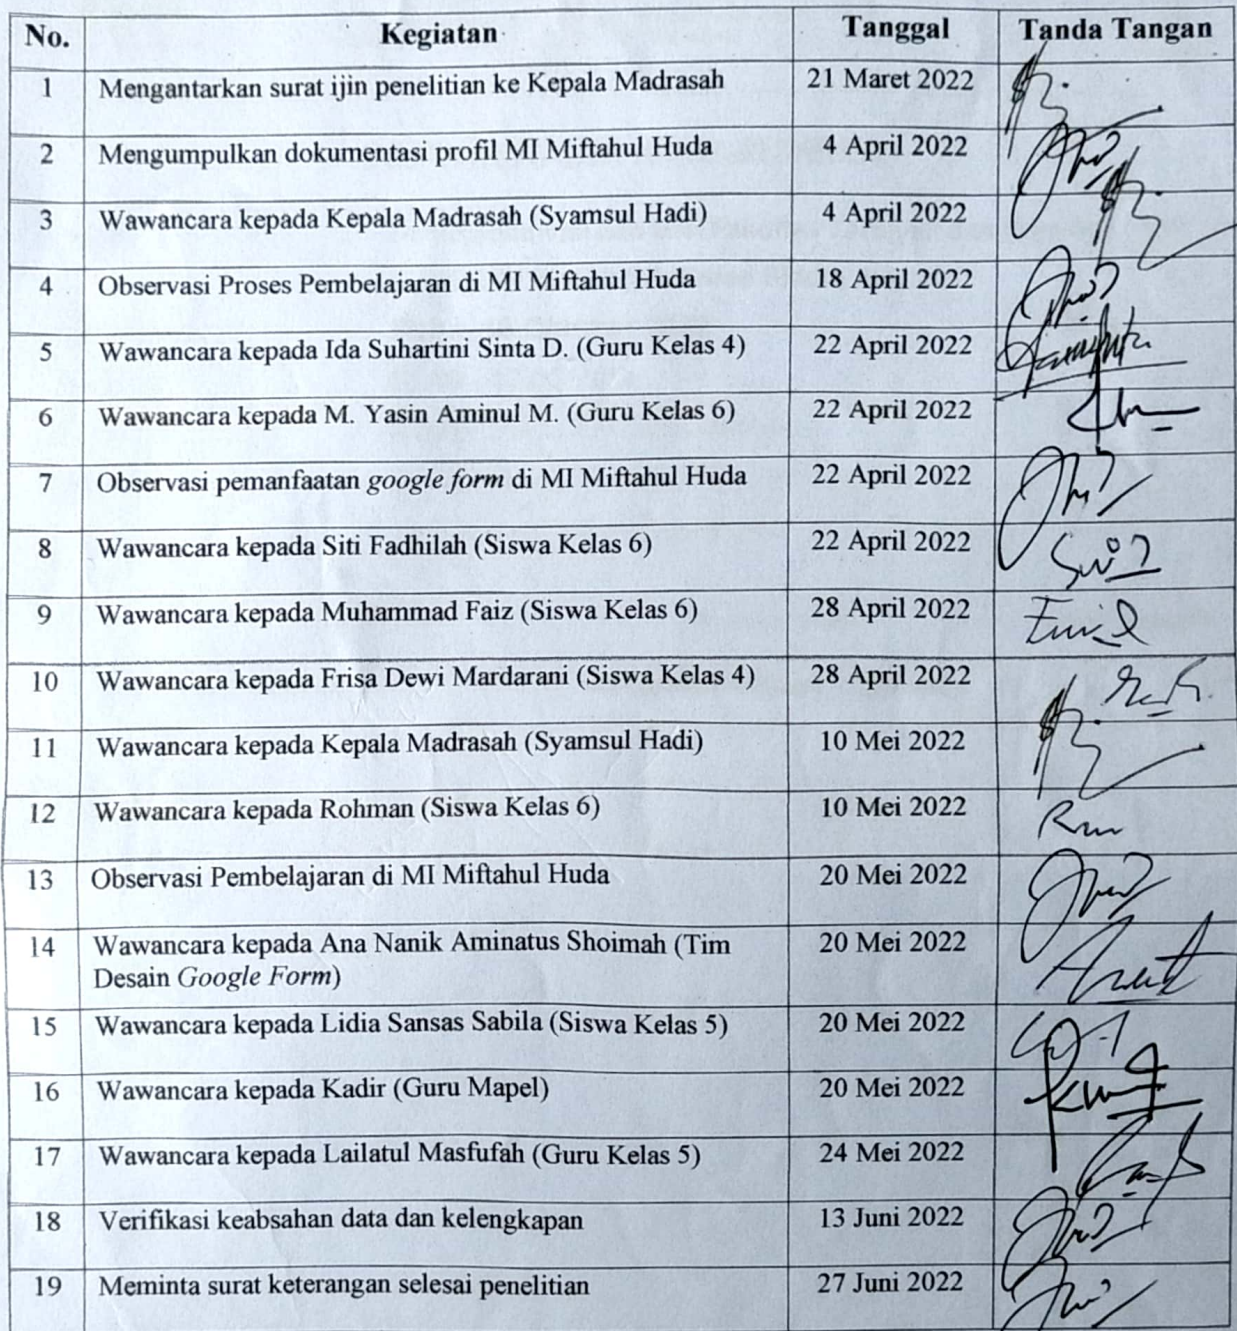 No. Kegiatan Tanggal Tanda Tangan
1 Mengantarkan surat ijin penelitian ke Kepala Madrasah 21 Maret 2022
2 Mengumpulkan dokumentasi profil MI Miftahul Huda 4 April 2022
3 Wawancara kepada Kepala Madrasah (Syamsul Hadi) 4 April 2022
4 Observasi Proses Pembelajaran di MI Miftahul Huda 18 April 2022
5 Wawancara kepada Ida Suhartini Sinta D. (Guru Kelas 4) 22 April 2022
6 Wawancara kepada M. Yasin Aminul M. (Guru Kelas 6) 22 April 2022
7 Observasi pemanfaatan google form di MI Miftahul Huda 22 April 2022
8 Wawancara kepada Siti Fadhilah (Siswa Kelas 6) 22 April 2022
9 Wawancara kepada Muhammad Faiz (Siswa Kelas 6) 28 April 2022
10 Wawancara kepada Frisa Dewi Mardarani (Siswa Kelas 4) 28 April 2022
11 Wawancara kepada Kepala Madrasah (Syamsul Hadi) 10 Mei 2022
12 Wawancara kepada Rohman (Siswa Kelas 6) 10 Mei 2022
13 Observasi Pembelajaran di MI Miftahul Huda 20 Mei 2022
14 Wawancara kepada Ana Nanik Aminatus Shoimah (Tim 20 Mei 2022
Desain Google Form)
15 Wawancara kepada Lidia Sansas Sabila (Siswa Kelas 5) 20 Mei 2022
16 Wawancara kepada Kadir (Guru Mapel) 20 Mei 2022
17 Wawancara kepada Lailatul Masfufah (Guru Kelas 5) 24 Mei 2022
18 Verifikasi keabsahan data dan kelengkapan 13 Juni 2022
19 Meminta surat keterangan selesai penelitian 27 Juni 2022